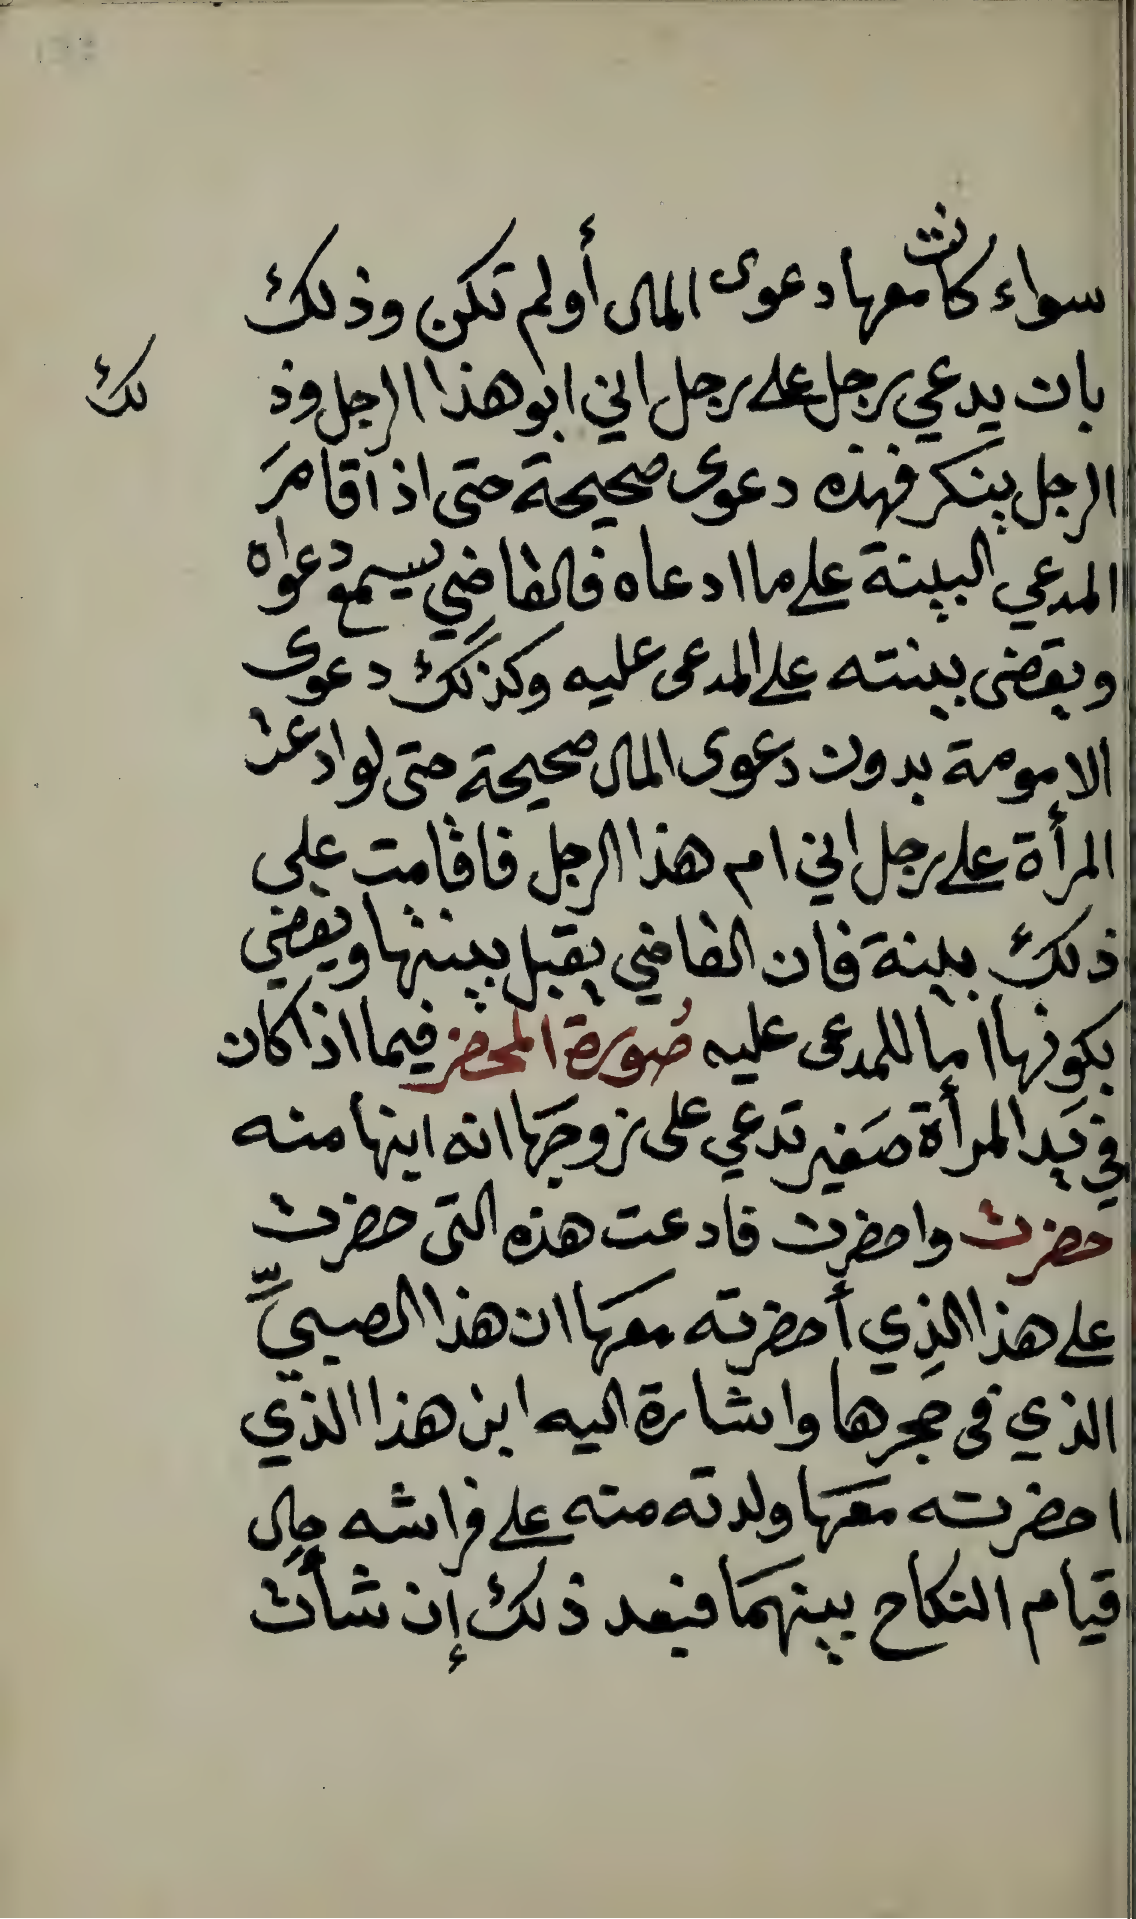 سواء كانت معها دعوى المال أو لم تكن وذلك
بان يدعي رجل على رجل اني ابو هذا الرجل وذلك
الرجل ينكر فهذه دعوى صحيحة حتى اذ اقامَ
المدعي البينة على ما ادعاه فالقاضي يسمع دعواه
ويقضى ببينته على المدعى عليه وكذلك دعوى
الامومة بدون دعوى المال صحيحة حتى لو ادعت
المرأة على رجل اني ام هذا الرجل فاقامت على
ذلك بينة فان القاضي يقبل بينتها ويقضي
بكونها اما للمدعى عليه صُورة المحضر فيما اذا كان
في يَد المرأة صَغير تدعي على زوجَها انه ابنها منه
حضرت واحضرت فادعت هذه التى حضرت
على هذا الذِي أحضرته معَها ان هذا الصبيّ
الذي فى حجرها واشارة اليه ابن هذا الذي
احضرته مَعَها ولدته منه على فراشه حال
قيام النكاح بينهمَا فبعد ذلك إن شأت